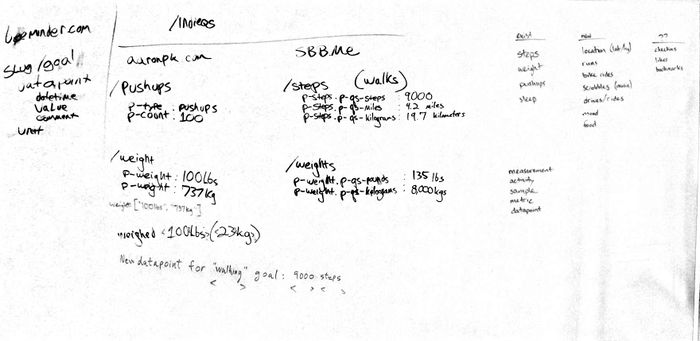 beeminder.com
slug/goal
datapoint
datetime
value
comment
unit
/Indiewebs
aaronpk.com
/pushups
p-type: pushups
p-count: 100
/weight
p-weight: 100lbs
p-weight: 737kg
weight ["100lbs", "737kg"]
weighed <100lbs> (<23kg>)
New datapoint for "walking" goal: 9000 steps
< > < > < >
SBB.Me
/steps (walks)
p-steps.p-qs-steps: 9000
p-steps.p-qs-miles: 4.2 miles
p-steps.p-qs-kilograms: 19.7 kilometers
/weights
p-weight.p-qs-pounds: 135 lbs
p-weight.p-qs-kilograms: 8000kgs
exist
steps
weight
pushups
sleep
measurement
activity
sample
metric
datapoint
new
location (lat/lng)
runs
bike rides
scrobbles (music)
drives/rides
mood
food
??
checkins
likes
bookmarks